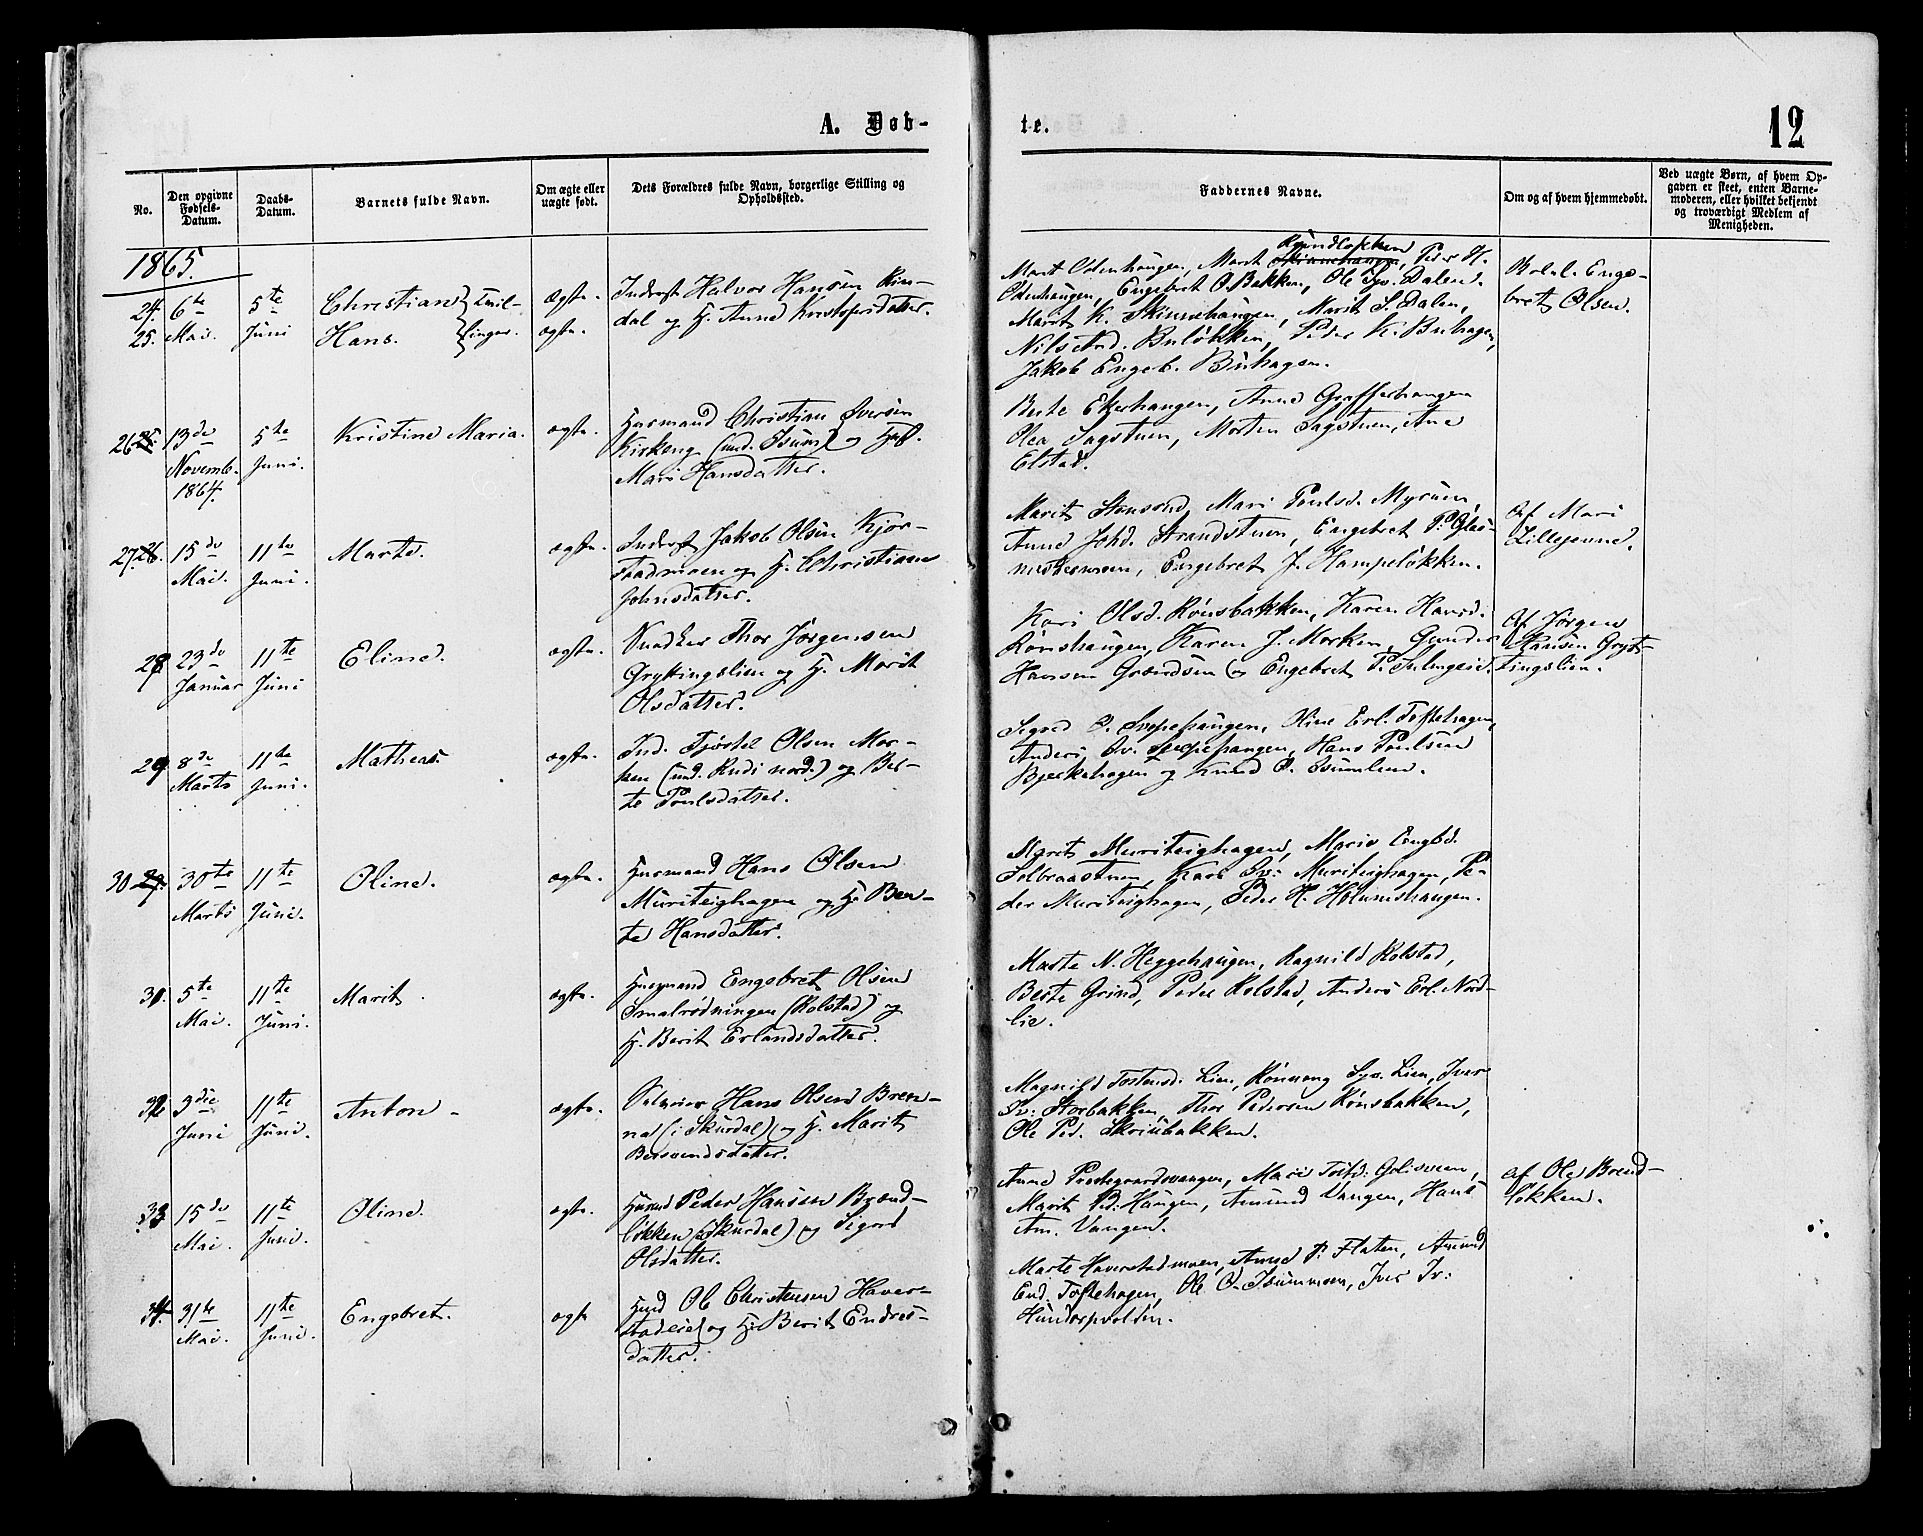 A. Døb-
te.
12
No.
Den opgivne
Fødsels-
Datum.
Daabs-
Datum.
Barnets fulde Navn.
Om ægte eller
uægte født.
Dets Forældres fulde Navn, borgerlige Stilling og
Opholdssted.
Faddernes Navne.
Om og af hvem hjemmedøbt.
Ved uægte Børn, af hvem Op-
gaven er skeet, enten Barne-
moderen, eller hvilket bekjendt
og troværdigt Medlem af
Menigheden.
1865.
24. 6te 5te Christian } Tvil-
25. Mai. Juni Hans. } linger.
ægte.
ægte.
Inderst Halvor Hansen Rin-
dal og H. Anne Kristophsdatter.
Rundløkken
Marit Odenhaugen, Marit Skinnehaugen, Peder H.
Odenhaugen, Engebret O. Bakken, Ole Syv. Dalen.
Marit K. Skinnehaugen, Marit S. Dalen,
Nils And. Buløkken, Peder K. Buhagen,
Jakob Engeb. Buhagen.
Engе-
bret Olsen.
26 25. 13de 5te Kristine Maria. ægte.
Novemb. Juni.
1864.
Husmand Christian Iversen
Kirkeng (und. Isum) og
Mari Hansdatter.
Berte Ekerhaugen, Anne Grafferhaugen
Olea Sagstuen, Morten Sagstuen, Ane
Elstad.
27. 26. 15de 11te Marte. ægte.
Mai. Juni.
Inderst Jakob Olsen Kjør-
stadmoen og H. Christiane
Johnsdatter.
Marit Stensrud, Mari Poulsd. Myruen,
Anne Johd. Strandstuen, Engebret P. Glas-
mestermoen, Engebret J. Hampeløkken.
Af Mari
Lillejonne.
28 23de 11te Eline. ægte.
Januar Juni
Snedker Thor Jørgensen
Gryttingslien og H. Marit
Olsdatter.
Kari Olsd. Rønsbakken, Karen Hansd.
Rønshaugen, Karen J. Morken, Gunder
Hansen Grondsen og Engebret P. Stulungseid.
Af Jørgen
Hansen Gryt-
tingslien.
29 8de 11te Mathea. ægte.
Marts Juni.
Ind. Fjøstel Olsen Mor-
ken (und. Rudi nord.) og Ber-
te Poulsdatter.
Sigrid P. Snepespangen, Oline Erl. Toftehagen,
Anders Iv. Snepespangen, Hans Poulsen
Bjerkehagen og Knud P. Isumlien.
30 29. 30te 11te Oline. ægte.
Marts Juni.
Husmand Hans Olsen
Muriteighagen og H. Ber-
te Hansdatter.
Marit Muriteighagen, Marie Engbd.
Solbraastuen, Kari Iv: Muriteighagen, Pe-
der Muriteighagen, Peder H. Holumshaugen.
31. 5te 11te Marit. ægte.
Mai. Juni.
Husmand Engebret Olsen
Smalrødningen (Kolstad) og
H. Berit Erlandsdatter.
Marte N. Heggehaugen, Ragnild Kolstad,
Berte Grind, Peder Kolstad, Anders Erl. Nord-
lie.
32 3die 11te Anton - ægte.
Juni Juni.
Selveier Hans Olsen Bren-
na (i Skurdal) og H. Marit
Bersvendsdatter.
Magnild Tostensd. Lien, Rønnoug Syv. Lien, Iver
Iv: Storbakken, Thor Pedersen Rønsbakken,
Ole Ped. Skriubakken.
33 15de 11te Oline. ægte.
Mai. Juni.
Husmd Peder Hansen Brænd-
løkken (i Skurdal) og Sigrid
Olsdatter.
Anne Prestegaardsvangen, Mari Tostd. Golisveen,
Marit P. Haugen, Amund Vangen, Hans
Am. Vangen.
af Ole Brend-
løkken.
34. 31te 11te Engebret. ægte
Mai. Juni.
Husd Ole Christensen Haver-
stadeie og H. Berit Endres-
datter.
Marte Haverstadmoen, Anne P. Flaten, Amund
End. Toftehagen, Ole O. Isummoen, Iver Iv:
Hundorpvolden.